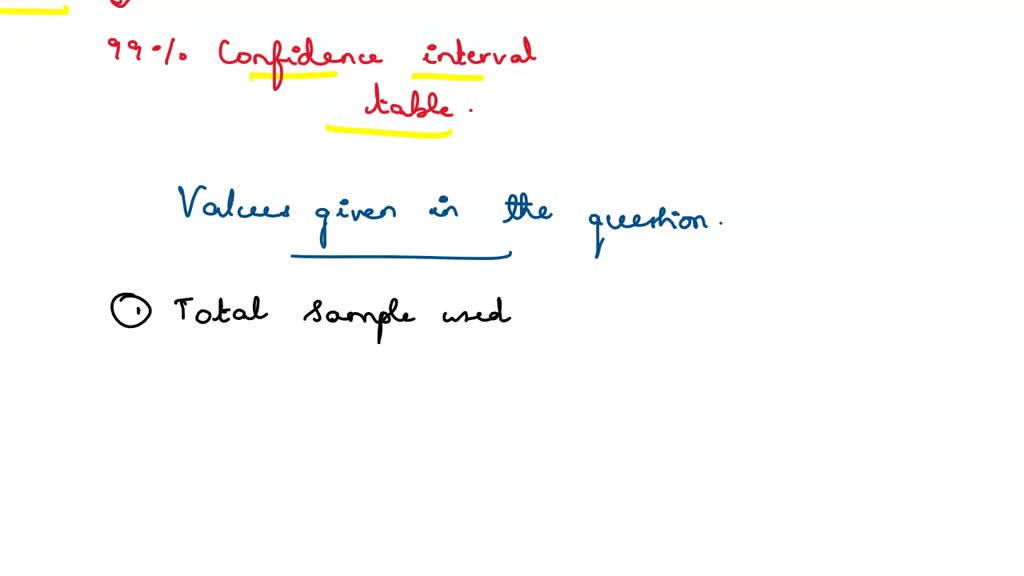 99% Confidence interval
table.
Values given in the question.
① Total sample used